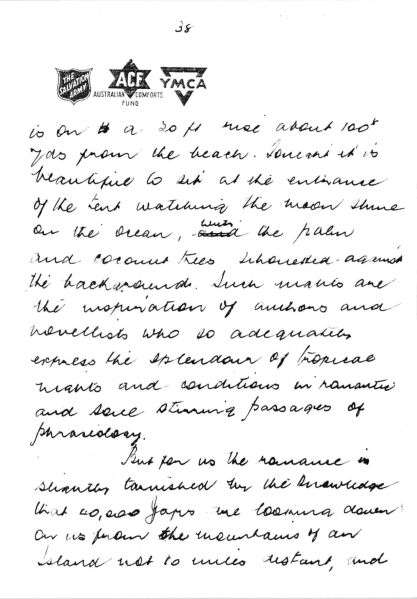 38
THE SALVATION ARMY
ACE
AUSTRALIAN COMFORTS FUND
YMCA
is on a 20 ft rise about 100
yds from the beach. Tonight it is
beautiful to sit at the entrance
of the tent watching the moon shine
on the ocean, with the palm
and coconut trees silhouetted against
the background. Such nights are
the inspiration of authors and
novellists who so adequately
express the splendour of tropical
nights and conditions in romantic
and soul stirring passages of
phraseology.
But for us the romance is
slightly tarnished by the knowledge
that 40,000 Japs are looking down
on us from the mountains of an
Island not 10 miles distant, and